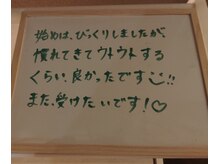 始めは、びっくりしましたが、
慣れてきてウトウトする
くらい、良かったです!!
また、受けたいです!♡